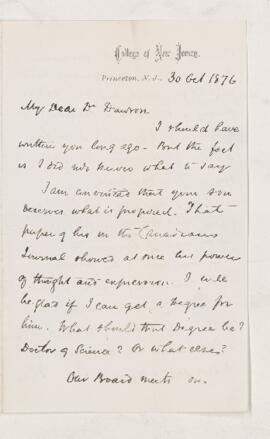 College of New Jersey.
Princeton, N.J., 30 Oct 1876
My Dear Dr Dawson.
I should have
written you long ago - But the fact
is I did not know what to say
I am convinced that your son
deserves what is proposed. That
paper of his in the Canadian
Journal showed at once his power
of thought and expression. I will
be glad if I can get a Degree for
him. What should that Degree be?
Doctor of Science? Or what else?
Our Board meets on